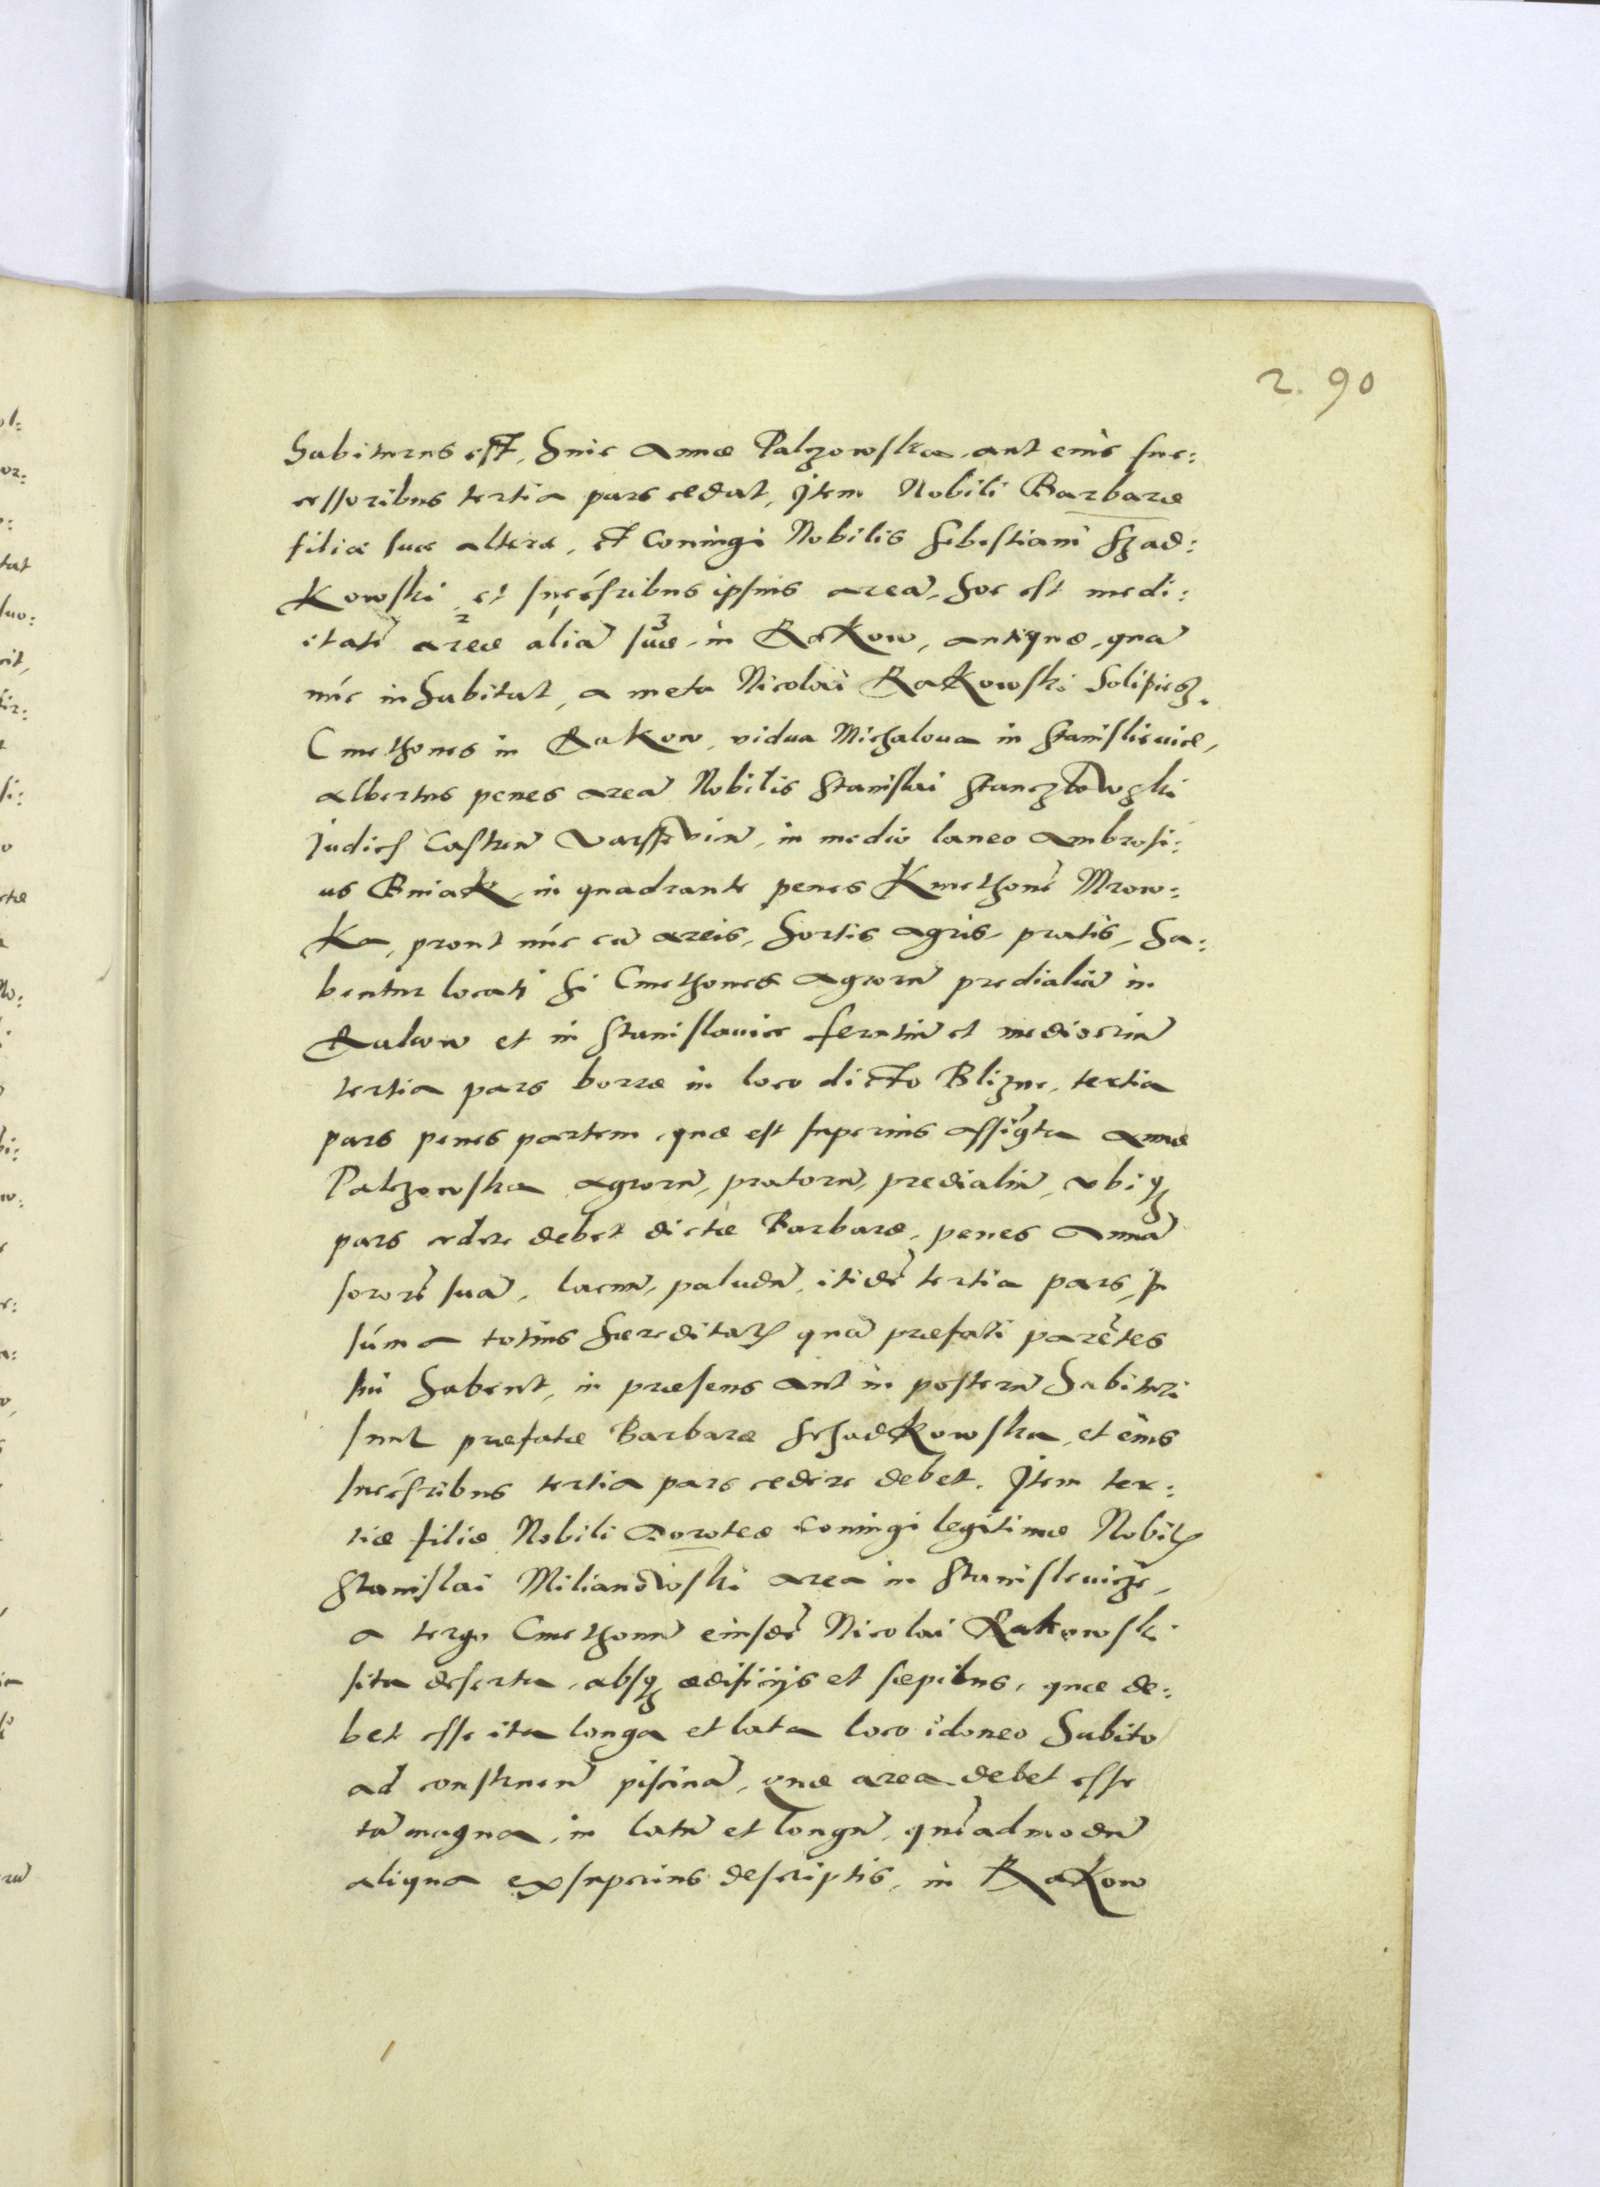 2. 90
habiturus est, huic Annæ Palczowska, aut eius suc:
cessoribus tertia pars cedat, Item Nobili Barbaræ
filiæ suæ alteræ, et Coniugi Nobilis Sebestiani Szad:
Kowski, et succēssribus ipsius areā, hoc est medi:
etatē areæ aliā suæ, in RaKow, antiquæ, quā
nūc inhabitat, a meta Nicolai RaKowski
Cmethones in RaKow, vidua Michalowa in Stanislievice,
Albertus penes areā Nobilis Stanislai
Judicis Castren̄ Varsseviēn, in medio laneo Ambrosi:
us BniaK, in quadrante penes Kmethonē Mrow:
Ka, prout nūc cū areis, hortis agris, pratis, ha:
bentur locati hi Cmethones Agrorū predialiū in
Rakow et in Stanislavice et mediocriū
tertia pars borræ in loco dicto Blizne, tertia
pars penes partem, quæ est superius assig̃ta Annæ
Palczowska Agrorū, pratorū, predialiū, ubiq3
pars cedere debet dictæ Barbaræ, penes Annā
sororē suā, lacuū, paludū, itidē tertia pars, In
sūma totius hæreditatis quā præfati parētes
sui habent, in præsens aut in posterū habituri
sunt præfatæ Barbaræ SchadKowska, et eius
succēssribus tertia pars cedere debet. Item ter:
tiæ filiæ Nobili Doroteæ coniugi legitimæ Nobilis
Stanislai Milianowski area in Stanislevicze,
a tergo Cmethonū eiusdē Nicolai Rakowski
sita deserta, absq3 ædificijs et sæpibus, quæ de:
bet esse ita longa et lata loco idoneo habito
ad construen̄ piscinā, quæ area debet esse
tā magna, in latū et longū, quēadmodū
aliqua ex superius descriptis, in RaKow